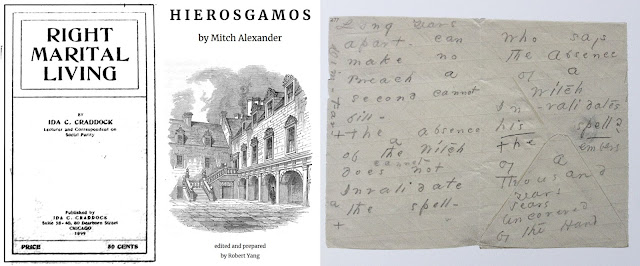 RIGHT
MARITAL
LIVING
BY
IDA C. CRADDOCK
Lecturer and Correspondent on
Social Purity
Published by
IDA C. CRADDOCK
80 Dearborn Street
CHICAGO
1899
PRICE 50 CENTS
HIEROSGAMOS
by Mitch Alexander
edited and prepared
by Robert Yang
Long Years
apart - can
make no
Breach a
second cannot
fill -
+ the absence
a
of the Witch
cannot
does not
Invalidate
the spell -
who says
the Absence
of a
Witch
In-validates
his spell?
the embers
of a
Thousand
years
uncovered
by the Hand